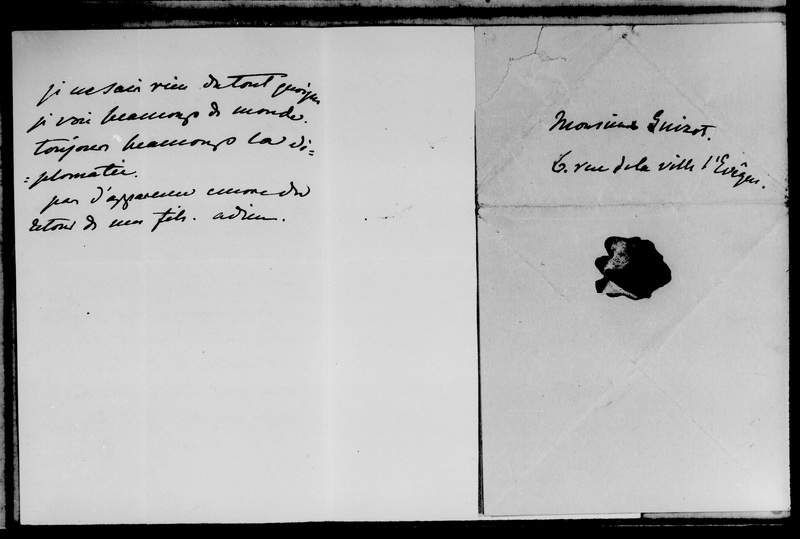 je ne sais rien du tout quoique
je vois beaucoup de monde.
toujours beaucoup la di=
=plomatie.
pas d'apparence encore du
retour de mon fils. adieu.
Monsieur Guizot.
6. rue de la ville l'Evêque.